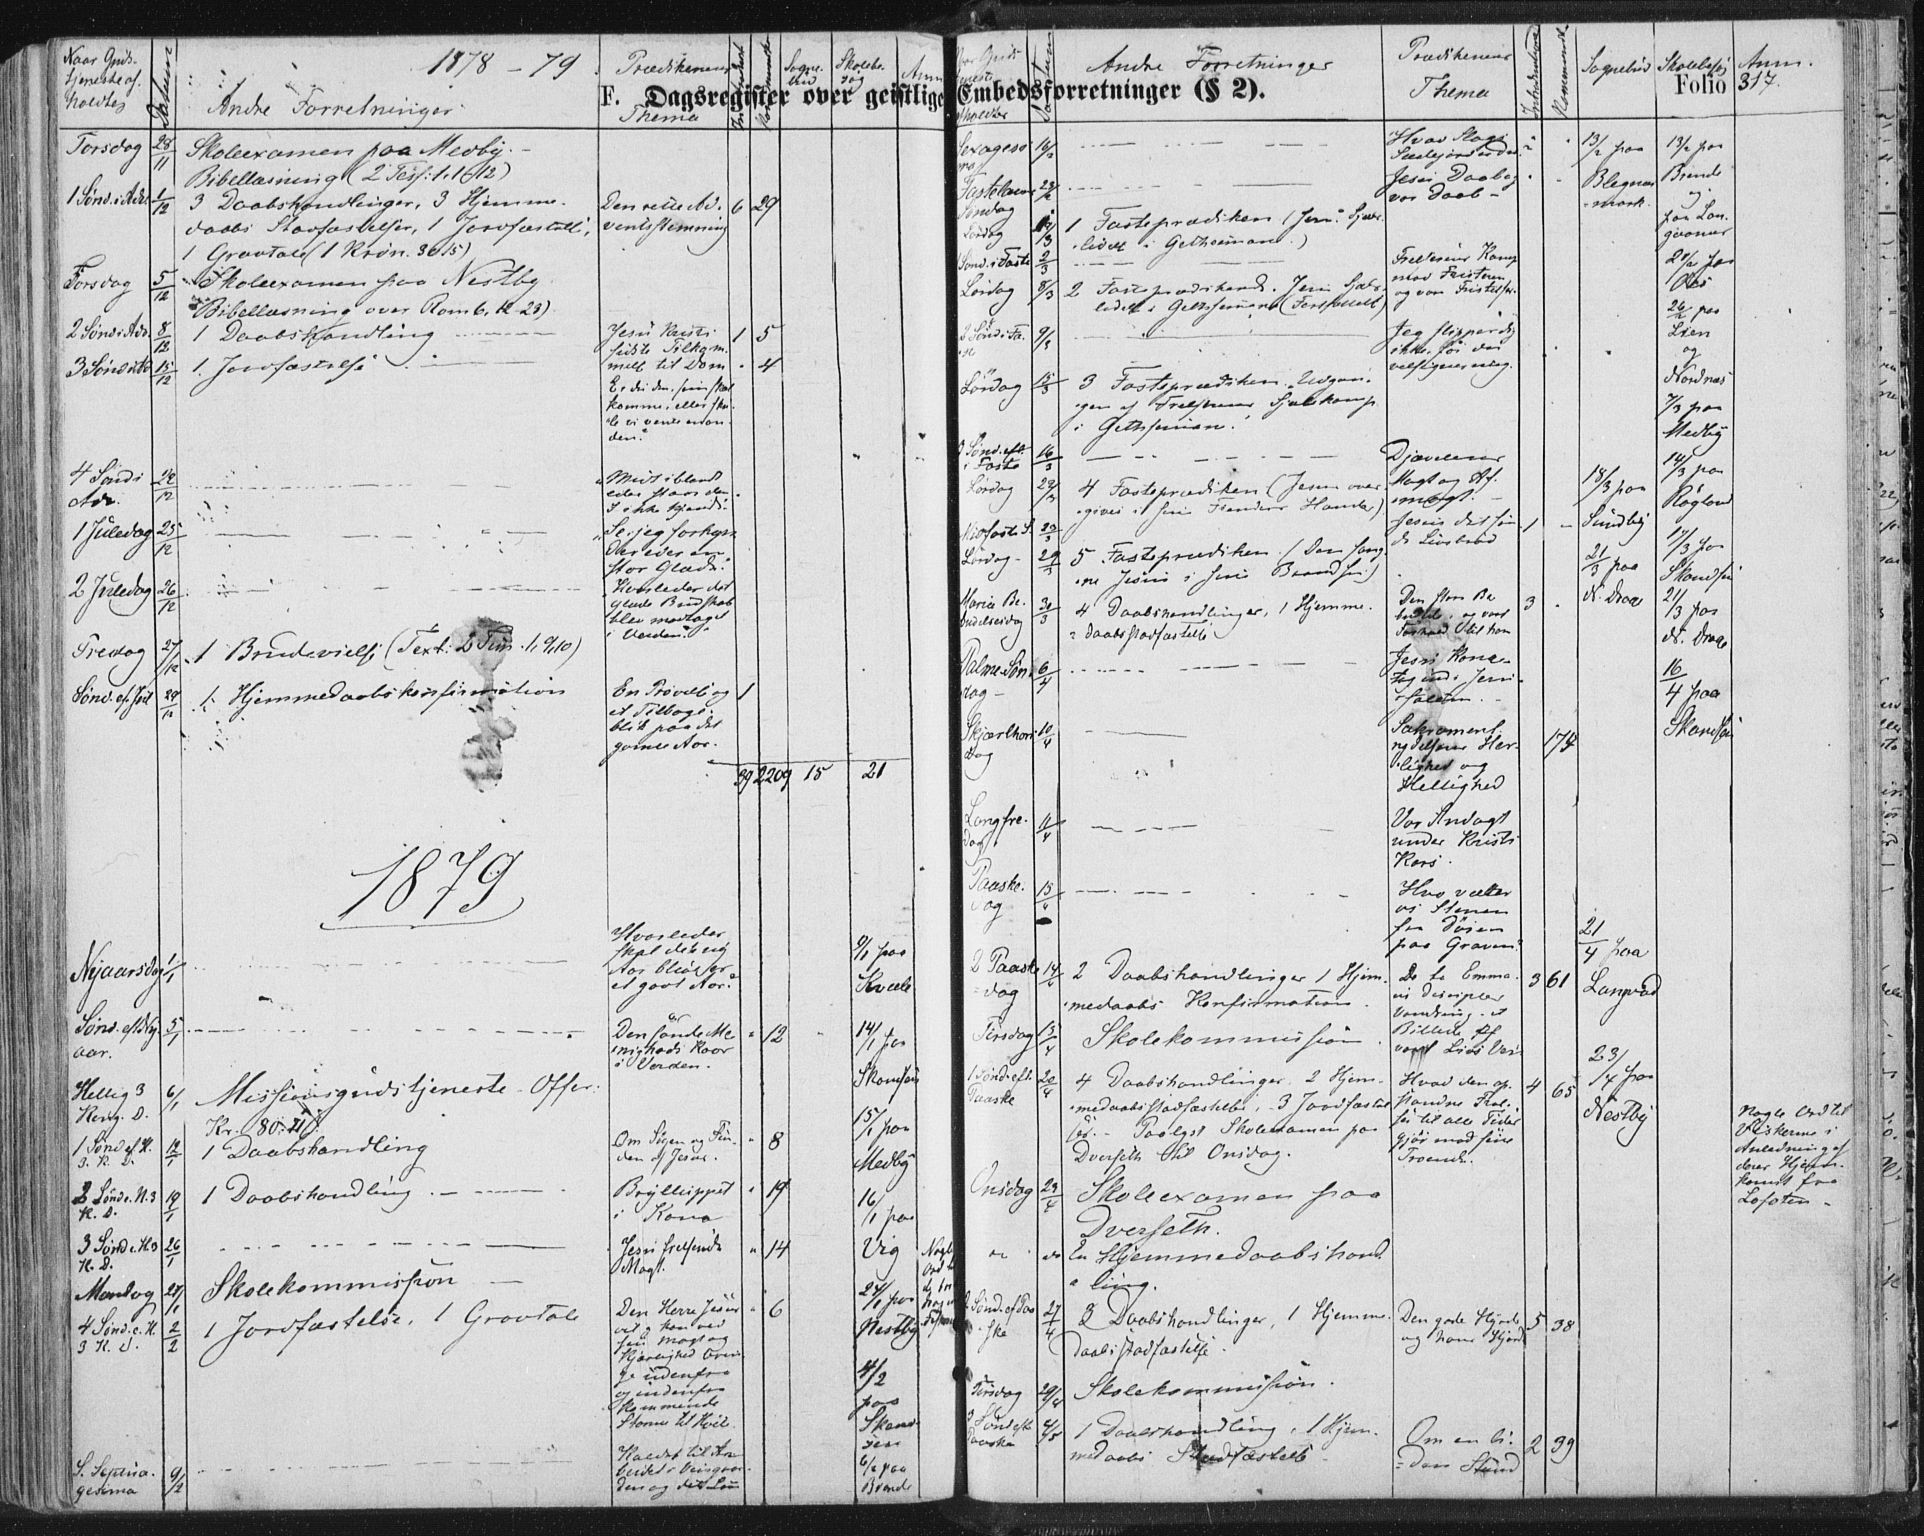 1878-79
F. Dagsregister over geistlige Embedsforretninger (§ 2).
Folio 317.
Naar Guds-
tjeneste af-
holdtes
Datum
Andre Forretninger
Prædikenens
Thema
Sogne-
bud
Torsdag 28/11 Skoleexamen paa Medby.
Bibellæsning (2 Tess: 1.1-12)
1 Sønd. i Adv. 1/12 3 Daabshandlinger, 3 Hjemme-
daabs Stadfæstelser, 1 Jordfæstelse,
1 Gravtale (1 Krøn. 30.15)
Den rette Ad-
ventsstemning
6 29
Torsdag 5/12 Skoleexamen paa Nestby
Bibellæsning over Rom 6, 12-23)
2 Sønd i Adv. 8/12 1 Daabshandling
Jesu Kristi
sidste Tilkom-
melse til Dom
1 5
3 Sønd i Ad 15/12 1 Jordfæstelse
Er du den som skal
komme, eller ska-
le vi vente en an-
den?
4
4 Sønd i
Adv. 22/12
Midt iblandt
eder staar den
I ikke kjende
1 Juledag 25/12
Se jeg forkyn-
der eder en
stor Glæde.
2 Juledag 26/12
Hvorledes det
glade Budskab
blev modtaget
i Verden.
Fredag 27/12 1 Brudevielse (Text: 2 Tim. 1, 9,10)
Sønd. ef. Jul 29/12 1 Hjemmedaabskonfirmation
En Prøvelse og
et Tilbage-
blik paa det
gamle Aar.
1
39 2209 15 21
1879
Nyaarsdag 1/1
Hvorledes
skal det ny
Aar blive er
et godt Aar?
9/1 paa
Kvale
Sønd. ef. Ny-
aar. 5/1
Den sande Me-
nigheds Kaar
i Verden.
12
14/1 paa
Skansen
Hellig 3
Kong. D. 6/1 Missionsgudstjeneste - Offer:
Kr. 80:
15/1 paa
Medby
1 Sønd ef H.
3. K. D. 12/1 1 Daabshandling
Om Søgen og Fin-
den af Jesus.
8
2 Sønd e. H. 3
K. D. 19/1 1 Daabshandling
Bryllupet
i Kana
17
16/1 paa
Vig
3 Sønd e. H 3
K. D. 26/1
Jesu frelsende
Magt.
14
Mandag 27/1 Skolekommission
24/1 paa
Nestby
4 Sønd. e. H.
3 K. D. 2/2 1 Jordfæstelse, 1 Gravtale
Den Herre Jesus
Magt og
Kjærlighed
udenfra
og indenfra
kommende
Storme til Hvile
6
4/2
paa
Skan-
sen
S. Septua-
gesima 9/2
Kaldet til Ar-
beidet i Viingaar-
den og det Løn
6/2 paa
Brende
Andre Forretninger
Prædikenens
Thema
Sognebud
Skolebesøg
Anm.
Sexagesi-
ma 16/2
Hvad Slags
13/2 paa
Blegnes-
mark.
13/2 paa
Brende
og
paa Lan-
Fastelavns
Søndag 23/2
Jesu Daab og
vor Daab
Lørdag 1/3 1 Fasteprædiken (Jesu Sjæle-
lidelse i Gethsemane.)
Sønd. i Faste 2/3
Frelserens Kamp
mod Fristeren
og vor Fristelse.
Lørdag 8/3 2 Fasteprædiken. Jesu Sjæle-
lidelse i Gethsemane (Fortsættelse)
26/2 paa
Lien
og
Nordnes
2 Sønd i Fa-
ste 9/3
Jeg slipper dig
ikke, før du
velsigner mig.
Lørdag 15/3 3 Fasteprædiken. Udgan-
gen af Frelserens Sjælekamp
i Gethsemane.
7/3 paa
Medby
3 Sønd. eft.
i Faste 16/3
Djævelens
Magt og Af-
magt.
14/3 paa
Røgland
Lørdag 22/3 4 Fasteprædiken (Jesus over-
gives i sine Fienders Hænder)
18/3 paa
Sundby
Midfaste S. 23/3
Jesus det san-
de Livsbrød
1
17/3 paa
Skandsen
Lørdag 29/3 5 Fasteprædiken (Den fang-
ne Jesus i sine Baand)
21/3 paa
N. Drag
21/3 paa
N. Drage
Mariæ Be-
budelsesdag 30/3 4 Daabshandlinger, 1 Hjemme-
daabsstadfæstelse
Den store Be-
og vort
Forhold til ham
3
Palme Søn-
dag 6/4
Jesu Konge-
tog ind i Jeru-
salem.
16/4 paa
Skandsen
Skjærthors-
dag 10/4
Sakrament-
nydelsens Her-
lighed og
Hellighed
174
Langfre-
dag 11/4
Vor Andagt
under Kristi
Kors.
Paaske-
dag
Hvo vælter
os Stenen
fra Døren
paa Graven?
21/4 paa
Langvad
2 Paaske-
dag 14/4 2 Daabshandlinger 1 Hjem-
medaabs Konfirmation
De to Emma-
us Disciples
Vandring, et
Billede af
vort Livs Van-
3 61
Tirsdag 15/4 Skolekommission
23/4 paa
Nestby
1 Sønd. eft.
Paaske 20/4 4 Daabshandlinger, 2 Hjem-
medaabsstadfæstelser, 3 Jordfæstel
ser. Paalyst Skoleexamen paa
Dverseth til Onsdag.
Hvad den op-
standne Frel-
ser til alle Tider
gjør mod sine
Troende.
4 65
Nogle Ord til
Fiskerne i
Anledning af
deres Hjem-
komst fra
Lofoten
Onsdag 23/4 Skoleexamen paa
Dverseth.
En Hjemmedaabshand-
ling.
2 Sønd. ef Paa-
ske 27/4 3 Daabshandlinger, 1 Hjemme-
daabsstadfæstelse.
Den gode Hyrde
og hans Hjord
5 38
Tirsdag 29/4 Skolekommission.
3 Sønd eft
Paaske 4/5 1 Daabshandling, 1 Hjem-
medaabs Stadfæstelse
Om en li-
den Stund
2 39